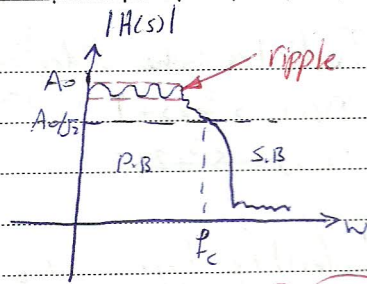 |H(s)|
ripple
A0
A0/√2
P.B
S.B
fc
W